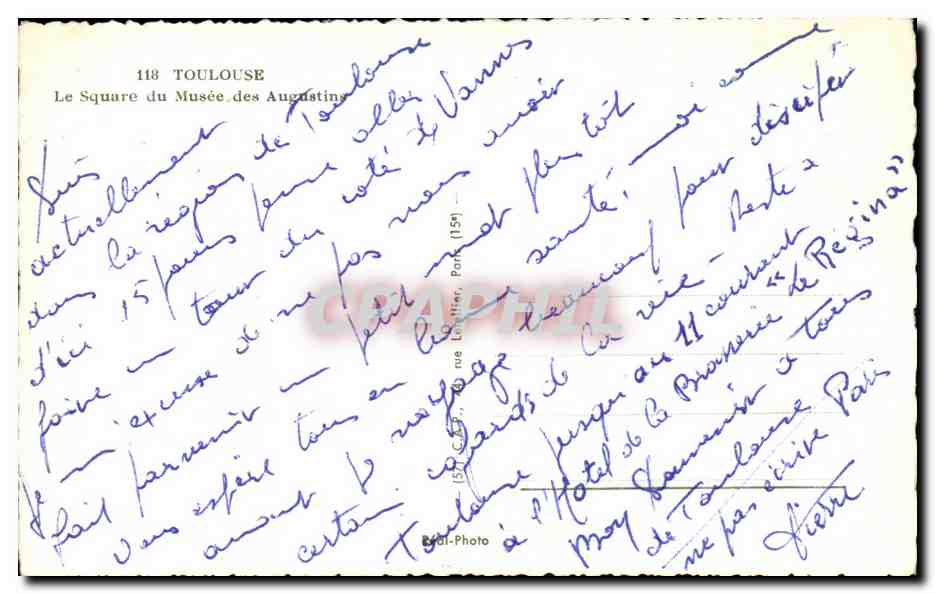 118 TOULOUSE
Le Square du Musée des Augustins
Suis
actuellement
dans la région de Toulouse
d'ici 15 jours pense aller
faire un tour du coté de Vannes
Je m'excuse de ne pas vous avoir
fait parvenir un petit mot plus tôt
Vous espère tous en bonne santé, moi comme
avant je voyage beaucoup pour
certain de la vie - Reste a
Toulouse jusqu'au 11 courant
a l'Hotel de la Brasserie "Le Régina"
Mon Souvenir a tous
de Toulouse
ne pas écrire Paris
Pierre
(57) C.A.P., rue Letellier, Paris (15e)
Réal-Photo
CPAPHIL